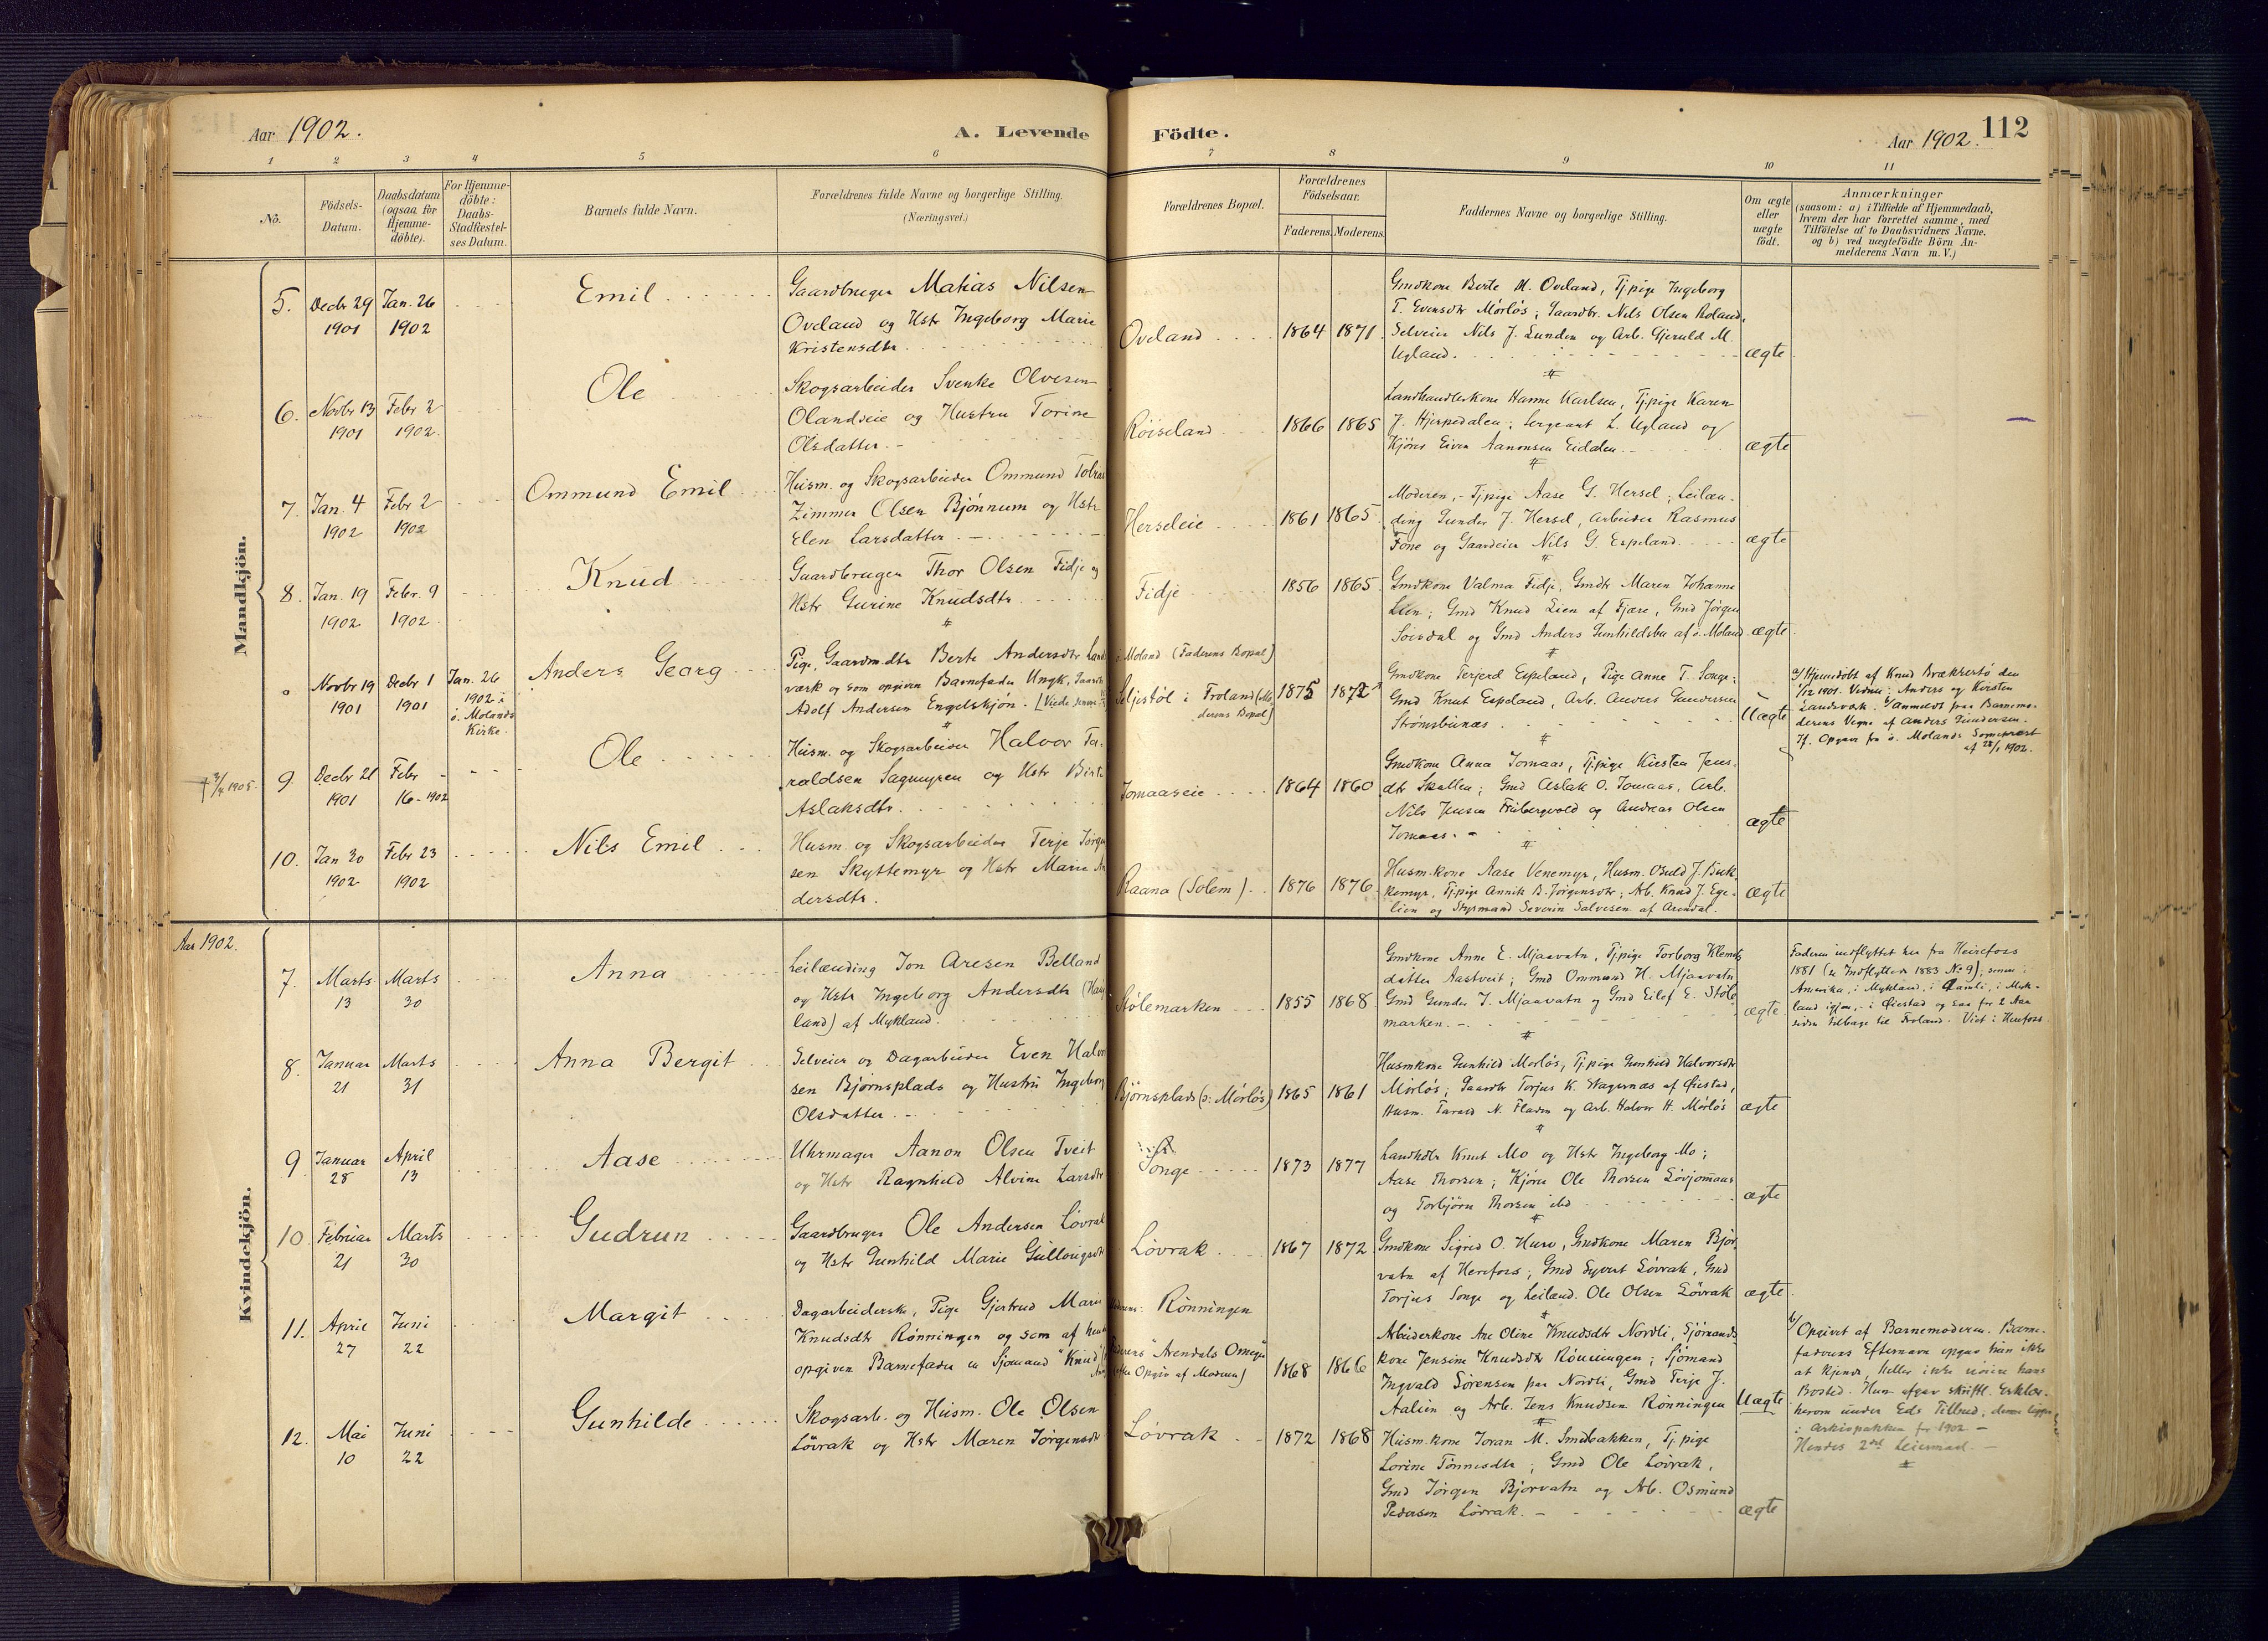 Aar 1902.
A. Levende
Födte.
Aar 1902.
112
1 2 3 4 5 6 7 8 9 10 11
No.
Födsels-
Datum.
Daabsdatum
(ogsaa for
Hjemme-
döbte).
For Hjemme-
döbte:
Daabs-
Stadfæstel-
ses Datum.
Barnets fulde Navn.
Forældrenes fulde Navne og borgerlige Stilling.
(Næringsvei.)
Forældrenes Bopæl.
Forældrenes
Födselsaar.
Faderens. Moderens.
Faddernes Navne og borgerlige Stilling.
Om ægte
eller
uægte
födt.
Anmærkninger
(saasom: a) i Tilfælde af Hjemmedaab,
hvem der har forrettet samme, med
Tilföielse af to Daabsvidners Navne.
og b) ved uægtefödte Börn An-
melderens Navn m. V.)
Mandkjön.
5.
Decbr 29
1901
Jan. 26
1902
Emil
Gaardbruger Matias Nilsen
Oveland og Hstr Ingeborg Marie
Kristensdtr.
Oveland
1864 1871
Gmdkone Berte M. Oveland, Tj.pige Ingeborg
T. Evensdtr Mörlös; Gaardbr. Nils Olsen Roland,
Selveier Nils J. Lunden og Arb. Gjeruld M.
Ugland.
ægte
6.
Novbr 13
1901
Febr 2
1902.
Ole
Skogsarbeider Svenke Olvesen
Olandseie og Hustru Torine
Olsdatter.
Röiseland
1866 1865
Landhandlerkone Hanne Karlsen, Tj.pige Karen
J. Hjerpedalen; Sergeant L. Ugland og
Kjörer Eiven Aanonsen Eidalen.
ægte
7.
Jan. 4
1902
Febr 2
1902
Ommund Emil
Husm. og Skogsarbeider Ommund Tobias
Zimmer Olsen Bjönnum og Hstr
Elen Larsdatter.
Herseleie
1861 1865
Moderen, Tj.pige Aase G. Hersel; Leilæn-
ding Gunder J. Hersel, Arbeider Rasmus
Fone og Gaardeier Nils G. Espeland.
ægte
8.
Jan. 19
1902
Febr. 9
1902
Knud
Gaardbruger Thor Olsen Fidje og
Hstr Gurine Knudsdtr
Fidje
1856 1865
Gmdkone Valma Fidje, Gmdtr Maren Johanne
Lien; Gmd Knud Lien af Fjære, Gmd Jörgen
Soisdal og Gmd Anders Gunhildsbu af ö. Moland
ægte
Novbr 19
1901
Decbr 1
1901
Jan. 26
1902 i
ö. Molands
Kirke.
Anders Georg
Pige, Gaardm.dtr Berte Andersdtr Land
værk og som opgiven Barnefader Ungk. Gaardbr
Adolf Andersen Engelskjön.
Moland (Faderens Bopæl)
Seljestöl i Froland (Mo-
derens Bopæl)
1875 1872
Gmdkone Terjerd Espeland, Pige Anne T. Songe;
Gmd Knut Espeland, Arb. Anders Gundersen
Strömsbunæs
Uægte
a) Hjemdöbt af Knud Brækkestö den
1/12 1901. Vidner: Anders og Kirsten
Landsværk. b) Anmeldt paa Barnemo-
derens Vegne af Anders Gundersen.
Jf. Opgave fra ö. Molands Sognepræst
af 28/1 1902.
† 3/4 1905.
9
Decbr 21
1901
Febr
16 - 1902
Ole
Husm. og Skogsarbeider Halvor Ta-
raldsen Sagmyren og Hstr Birte
Aslaksdtr.
Jomaaseie
1864 1860
Gmdkone Anna Jomaas, Tj.pige Kirsten Jens-
dtr Skallen; Gmd Aslak O. Jomaas, Arb.
Nils Jensen Fribergvold og Andreas Olsen
Jomaas.
ægte
10.
Jan 30
1902
Febr 23
1902
Nils Emil
Husm. og Skogsarbeider Terje Jörgen
sen Skyttemyr og Hstr Marie An
dersdtr.
Raana (Solem)
1876 1876
Husm.kone Aase Venemyr, Husm. Osuld J. Buk-
kemyr, Tj.pige Annik B. Jörgensdtr; Arb. Knud J. Ege-
lien og Styrmand Severin Salvesen af Arendal.
ægte
Aar 1902.
Kvindekjön.
7.
Marts
13
Marts
30
Anna
Leilænding Jon Aresen Belland
og Hstr Ingeborg Andersdtr (Haug
land) af Mykland.
Stölemarken
1855 1868
Gmdkone Anne E. Mjaavatn, Tj.pige Torborg Klemets
datter Aastveit; Gmd Ommund H. Mjaavatn
Gmd Gunder T. Mjaavatn og Gmd Eilef E. Stöle
marken.
ægte
Faderen indflyttet her fra Heirefoss
1881 (se Indflyttede 1883 No 9); senere i
Amerika, i Mykland, i Åmli, i Myk-
land igjen, i Öiestad og saa for 2 Aar
siden tilbage til Froland. Viet i Herefoss
8.
Januar
21
Marts
31
Anna Bergit
Selveier og Dagarbeider Even Halvor
sen Björnsplads og Hustru Ingeborg
Olsdatter.
Björnsplads (o: Mörlös)
1865 1861
Husmkone Gunhild Mörlös, Tj.pige Gunhild Halvorsdtr
Mörlös; Gaardbr Torjus K. Stagernæs af Öiestad,
Husm. Tarald N. Fladen og Arb. Halvor H. Mörlös
ægte
9
Januar
28
April
13
Aase
Uhrmager Aanon Olsen Tveit
og Hstr Ragnhild Alvine Larsdtr
Songe
1873 1877
Landhdlr Knut Mo og Hstr Ingeborg Mo;
Aase Thorsen; Kjörer Ole Thorsen Lövjomaas
og Torbjörn Thorsen ibd
ægte
10
Februar
21
Marts
30
Gudrun
Gaardbruger Ole Andersen Lövrak
og Hstr Gunhild Marie Gullougsdtr
Lövrak
1867 1872
Gmdkone Sigrid O. Hurv, Gmdkone Maren Bjor
vatn af Herefoss; Gmd Syvert Lövrak, Gmd
Torjus Songe og Leilænd. Ole Olsen Lövrak
ægte
11.
April
27
Juni
22
Margit
Dagarbeiderske, Pige Gjertrud Marie
Knudsdtr Rönningen og som af hende
opgiven Barnefader en Sjömand "Knud"
Moderens: Rönningen
Faderens "Arendals Omegn"
(efter Opgiv af Moderen)
1868 1866
Arbeiderkone Ane Oline Knudsdtr Nordli, Sjömands
kone Jensine Knudsdtr Rönningen; Sjömand
Ingvald Sörensen paa Nordli, Gmd Terje J.
Aalien og Arb. Jens Knudsen Rönningen
Uægte
b/ Opgivet af Barnemoderen. Barne-
faderens Efternavn opgav hun ikke
at kjende, heller ikke vidste hans
Bosted. Hun afgav skriftl. Erklær-
herom under Eds Tilbud; denne ligger
i Arkivpakken for 1902 -
Hendes 2det Leiermaal. -
12.
Mai
10
Juni
22
Gunhilde
Skogsarb. og Husm. Ole Olsen
Lövrak og Hstr Maren Jörgensdtr
Lövrak
1872 1868
Husm.kone Joran M. Smedbakken, Tj.pige
Lorine Tönnesdtr; Gmd Ole Lövrak,
Gmd Jörgen Bjorvatn og Arb. Osmund
Pedersen Lövrak.
ægte